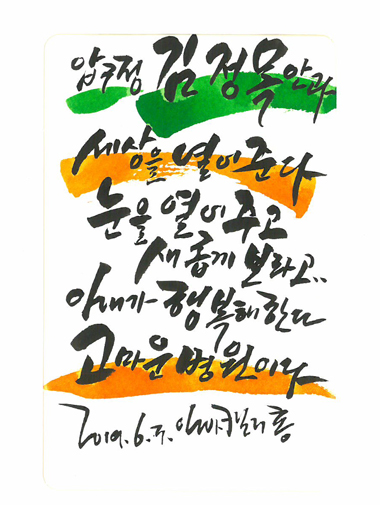 압구정 김정목안과
세상을 열어준다
눈을 열어 주고
새롭게 보라고..
아내가 행복해한다
고마운 병원이다
2019. 6. 5.